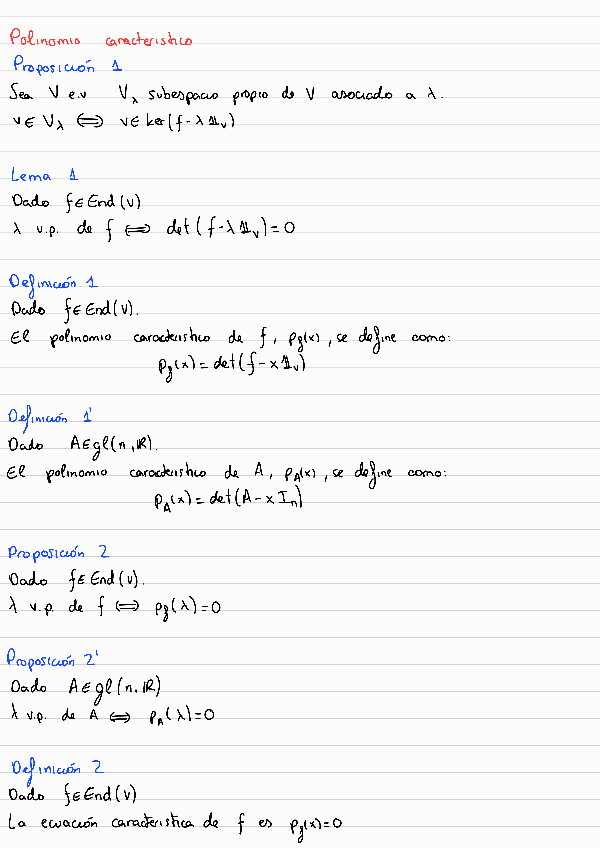 Polinomio característico
Proposición 1
Sea V e.v V_λ subespacio propio de V asociado a λ.
v ∈ V_λ ⟺ v ∈ ker(f - λ𝟙_V)
Lema 1
Dado f ∈ End(V)
λ v.p. de f ⟺ det(f - λ𝟙_V) = 0
Definición 1
Dado f ∈ End(V).
El polinomio característico de f, p_f(x), se define como:
p_f(x) = det(f - x𝟙_V)
Definición 1'
Dado A ∈ gl(n, ℝ).
El polinomio característico de A, p_A(x), se define como:
p_A(x) = det(A - x I_n)
Proposición 2
Dado f ∈ End(V).
λ v.p. de f ⟺ p_f(λ) = 0
Proposición 2'
Dado A ∈ gl(n, ℝ)
λ v.p. de A ⟺ p_A(λ) = 0
Definición 2
Dado f ∈ End(V)
La ecuación característica de f es p_f(x) = 0